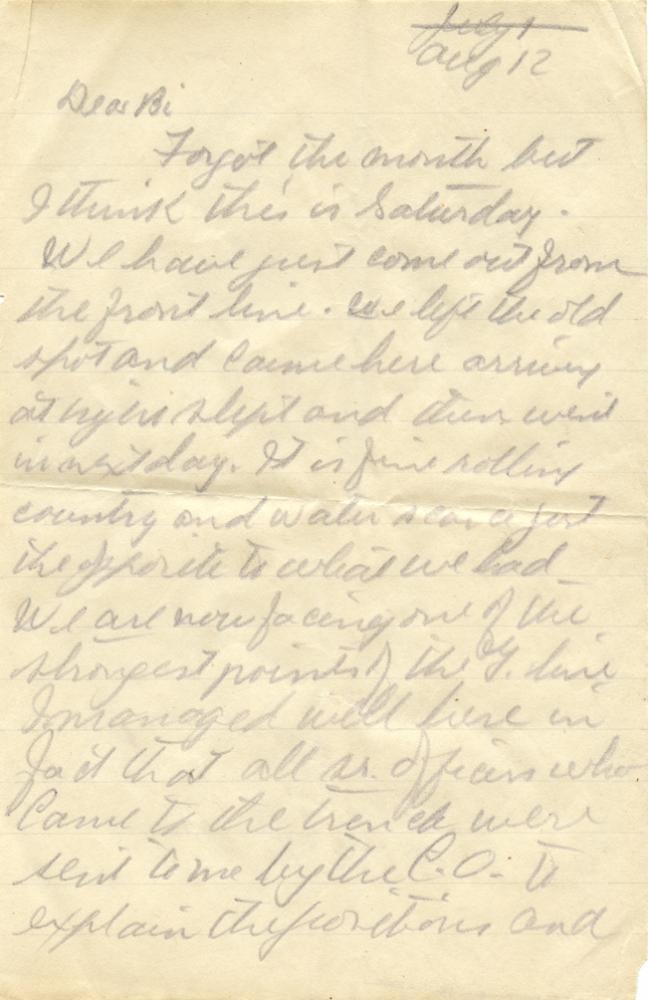 July 1
Aug 12
Dear Bi
Forgot the month but
I think this is Saturday.
We have just come out from
the front line. We left the old
spot and came here arriving
at night slept and then went
in next day. It is fine rolling
country and water scarce just
the opposite to what we had
We are now facing one of the
strongest points of the G. line
I managed well here in
fact that all sr. officers who
came to the trench were
sent to me by the C.O. to
explain the positions and